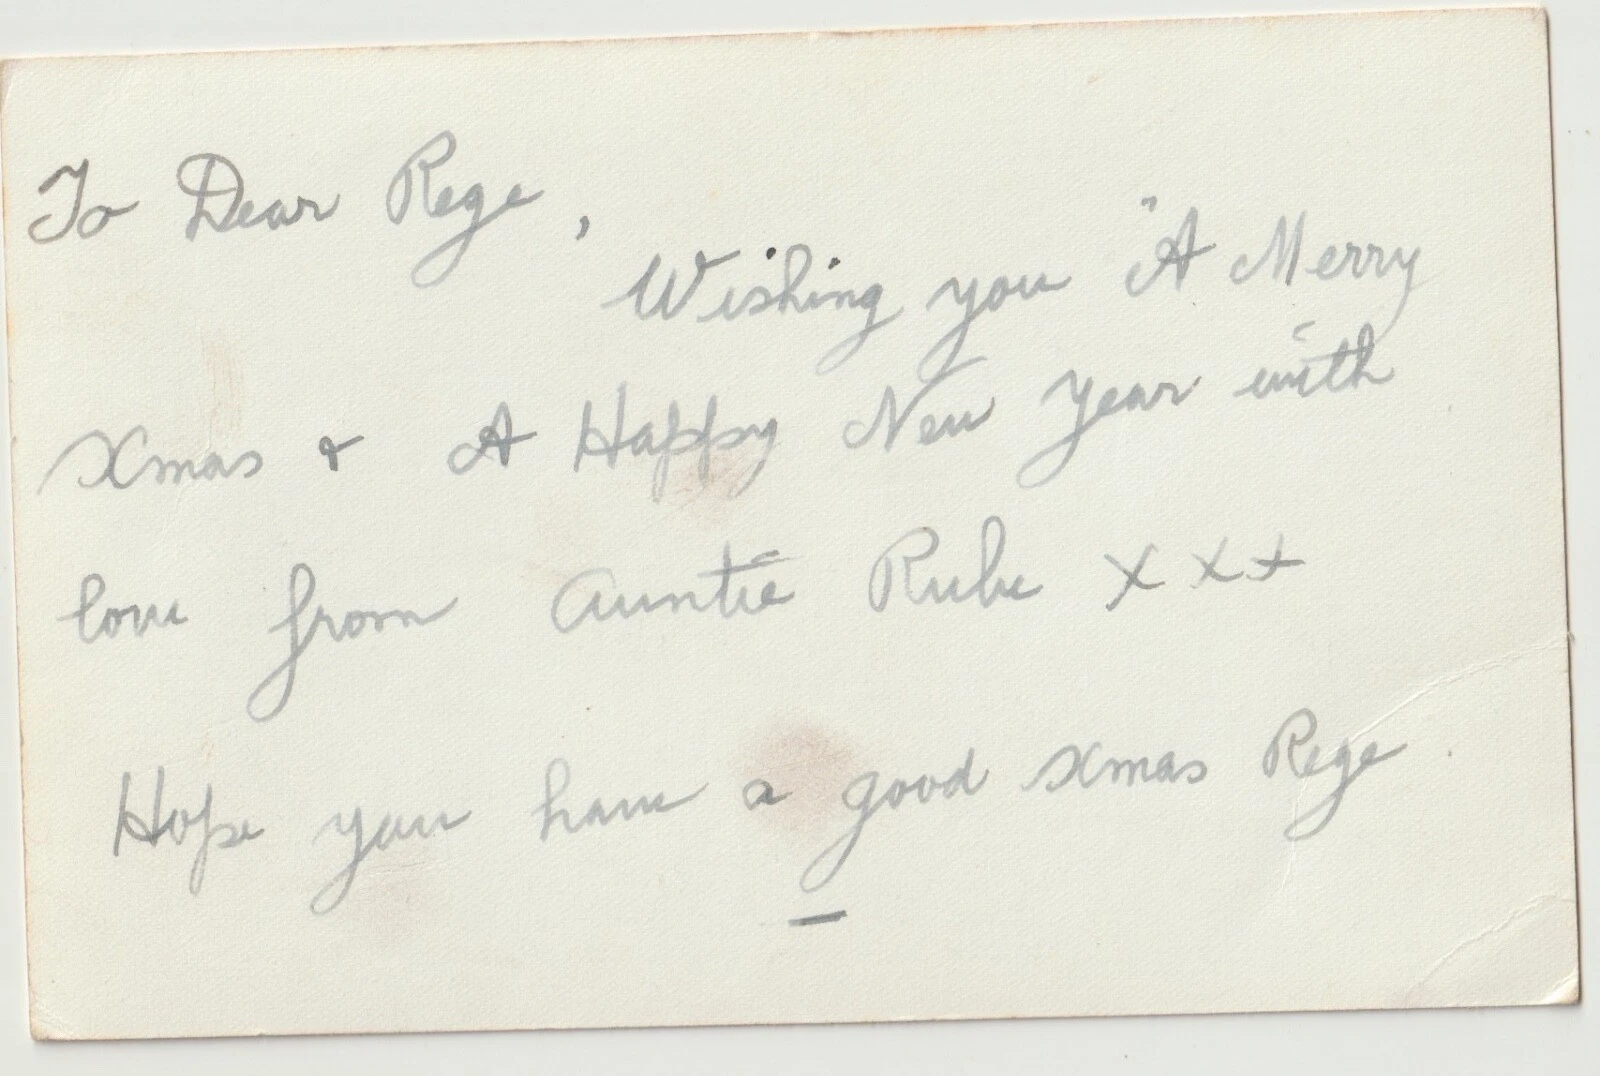 To Dear Rege,
Wishing you "A Merry
Xmas & A Happy New Year with
love from Auntie Rube x x x
Hope you have a good Xmas Rege.